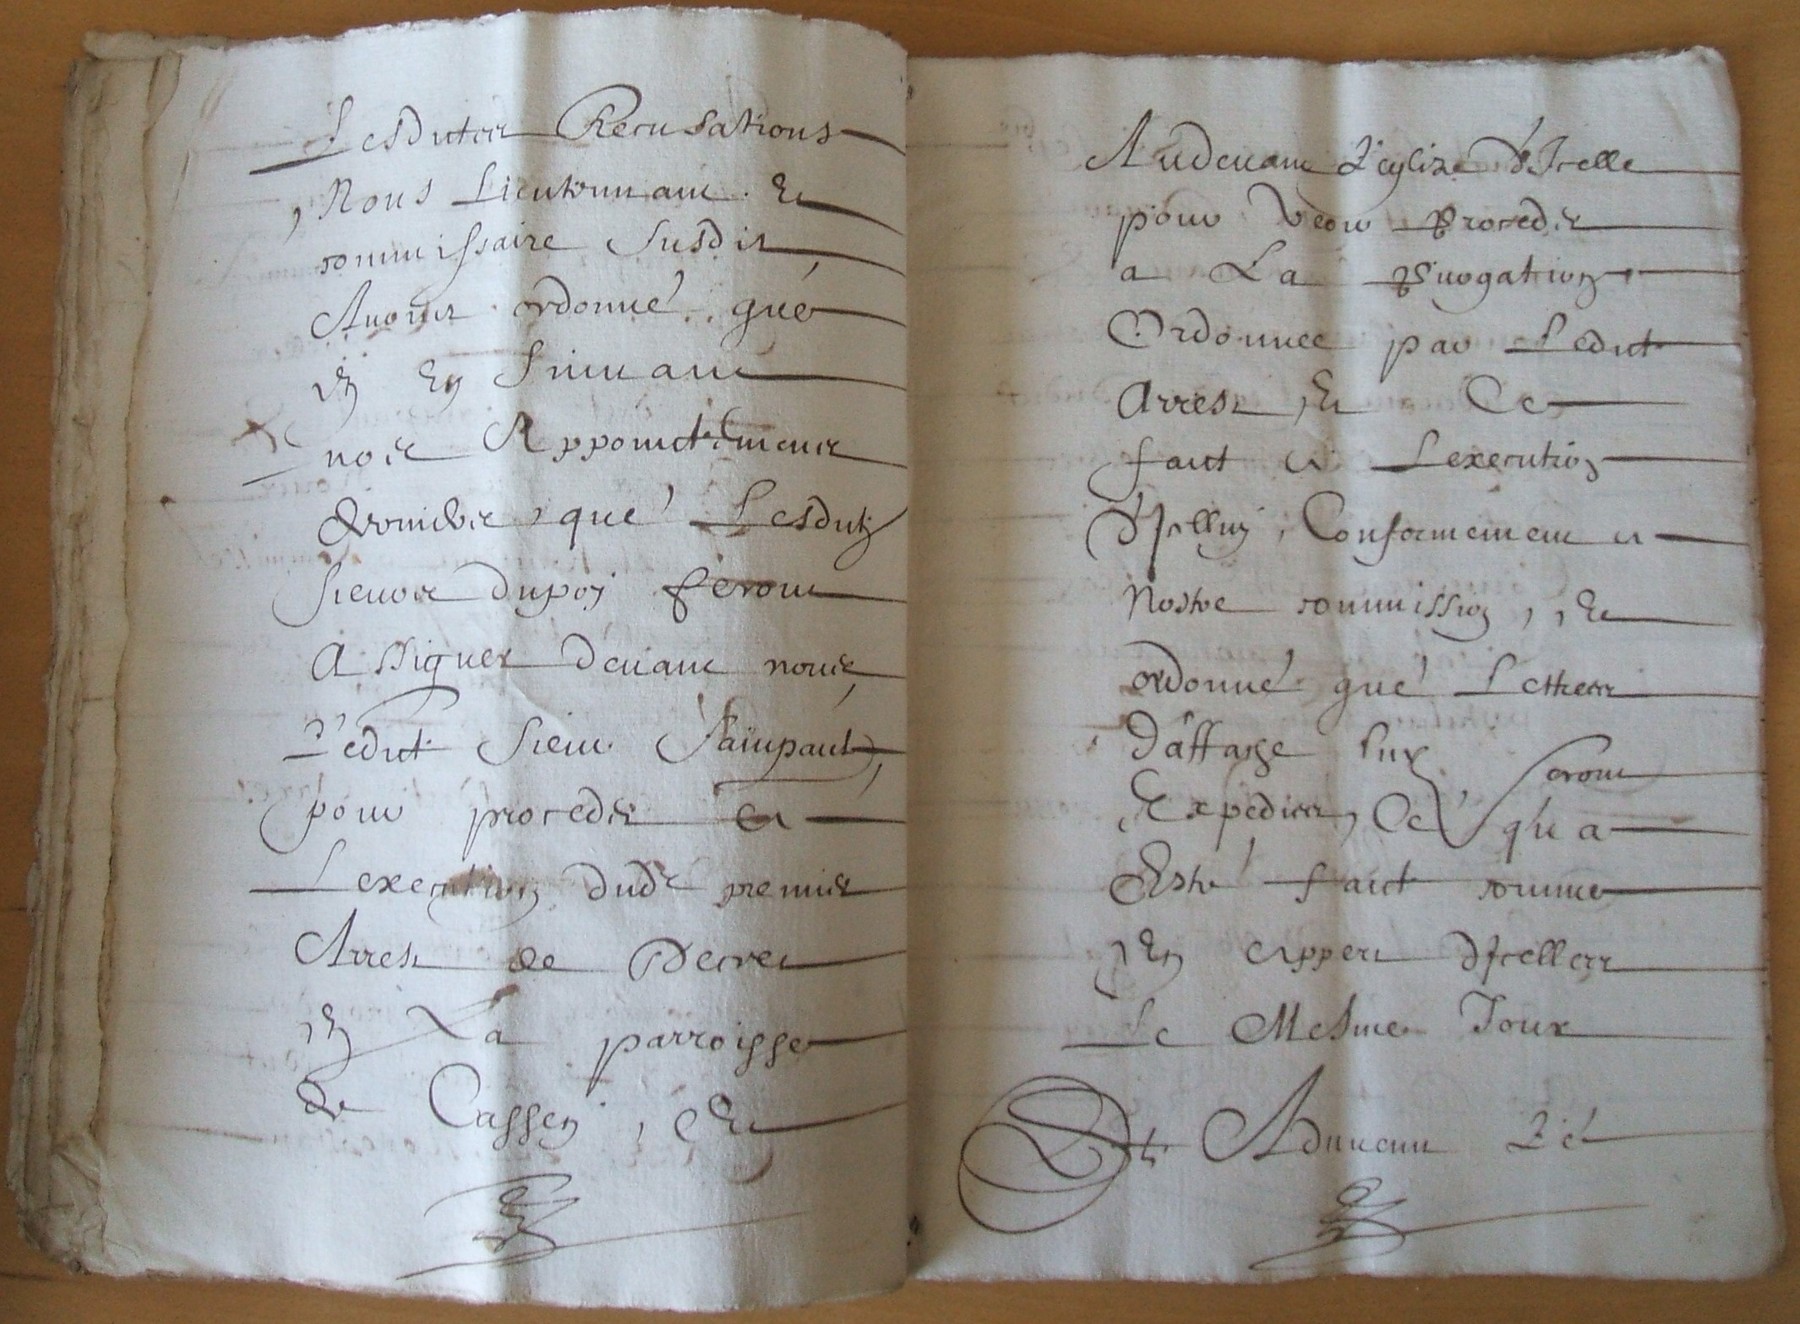 Lesdites Recusations
Nous Lieutenant Et
commissaire susdit
Auons ordonné que
En Ensuiuant
nos Appointements
que Lesdits
sieurs dupoy feront
Assigner deuant nous
Ledit sieur Sainpaul,
pour proceder a
Lexecution dudt premier
Arrest de Decret
En La parroisse
de Cassen, Et
Audeuant Leglize d'Icelle
pour veoir proceder
a La
Ordonnee par Ledit
Arrest, Et Ce
faict a Lexecution
d'Icelluy, Conformement a
Nostre commission, Et
ordonné que Lettres
d'affaige sur seront
Expediees, Ce qu'a
Esté faict comme
En appert d'Icelles
Le Mesme Jour
Et Aduenant Le